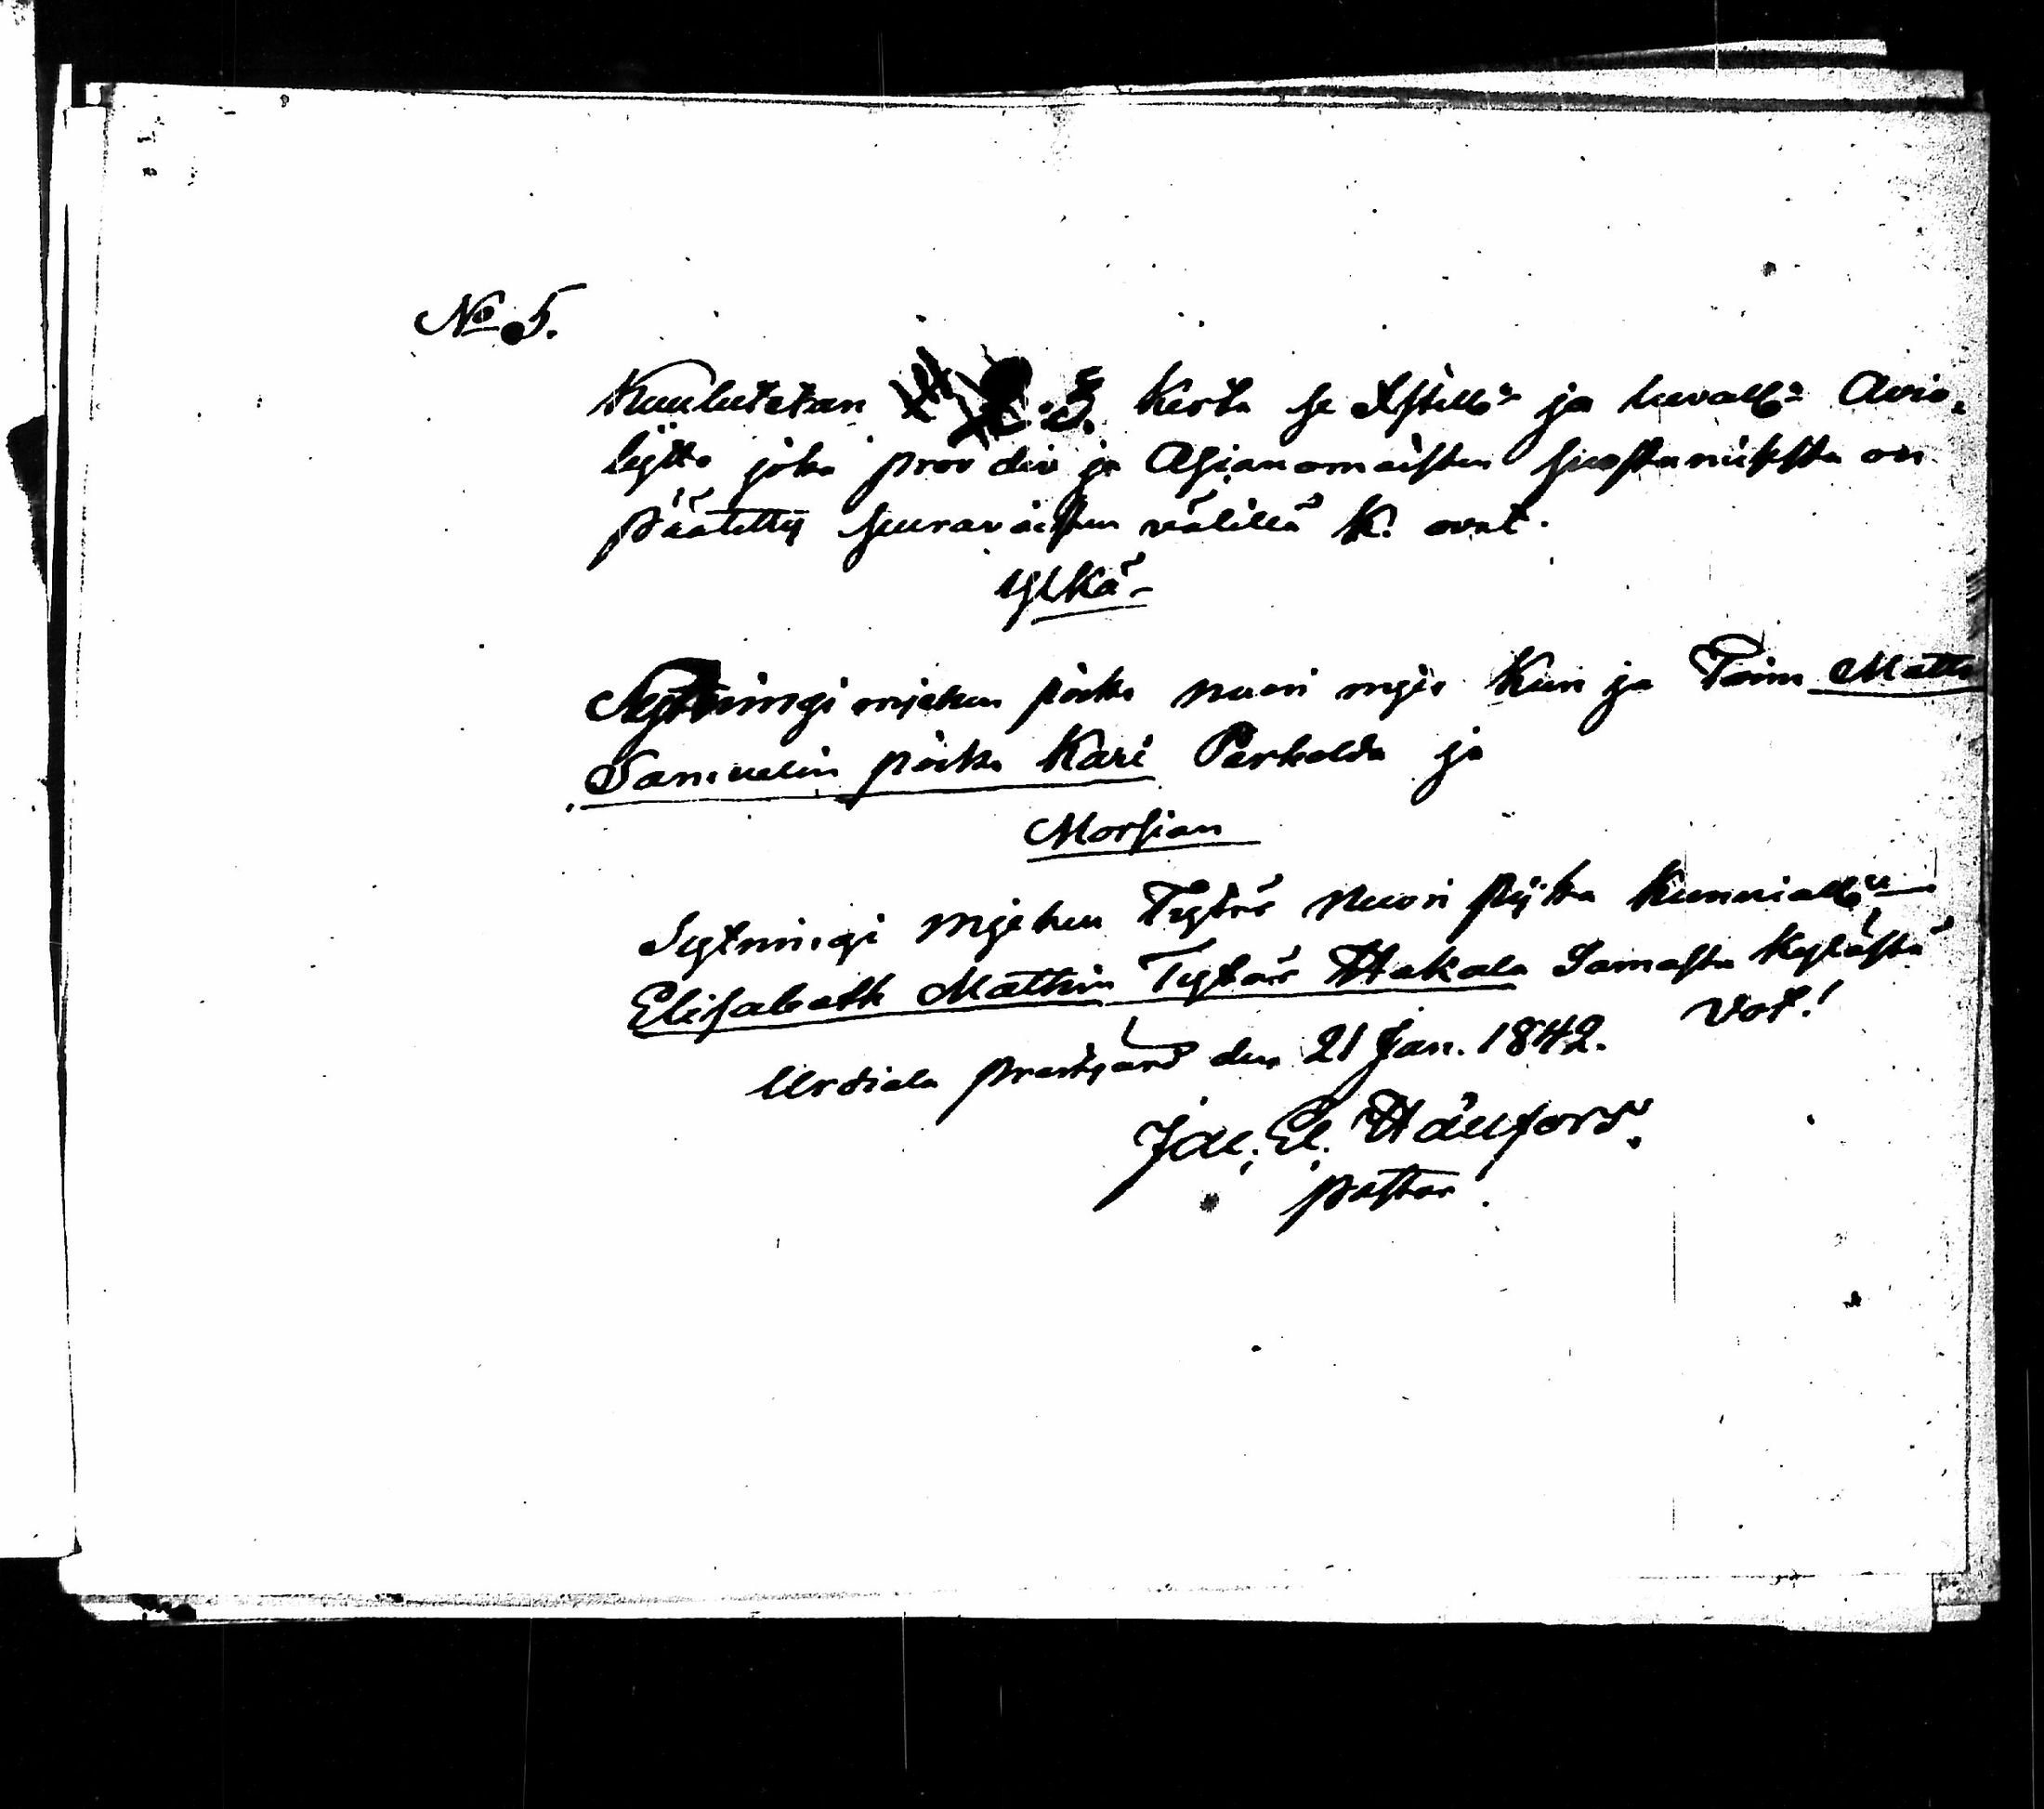 No 5.
Kuulutetan 3. kerta se Xstill:n ja luvall:n Avio-
lijtto joka prov div ja Asianomaisten suostumuksta on
päätetty seuravaisten välillä K. ovat.
ylkä
Sytningi mjehen poika nuori mjes Kun ja Toim Matts
Samuelin poika Kari Perkolda ja
Morsian
Sytningi mjehen Tytär nuori pijka kunniall:n
Elisabeth Mathin Tytär Hakala Samasta kylästä
vot!
Urdiala prestgård den 21 Jan. 1842.
Jac. El. Hällfors.
pastor.